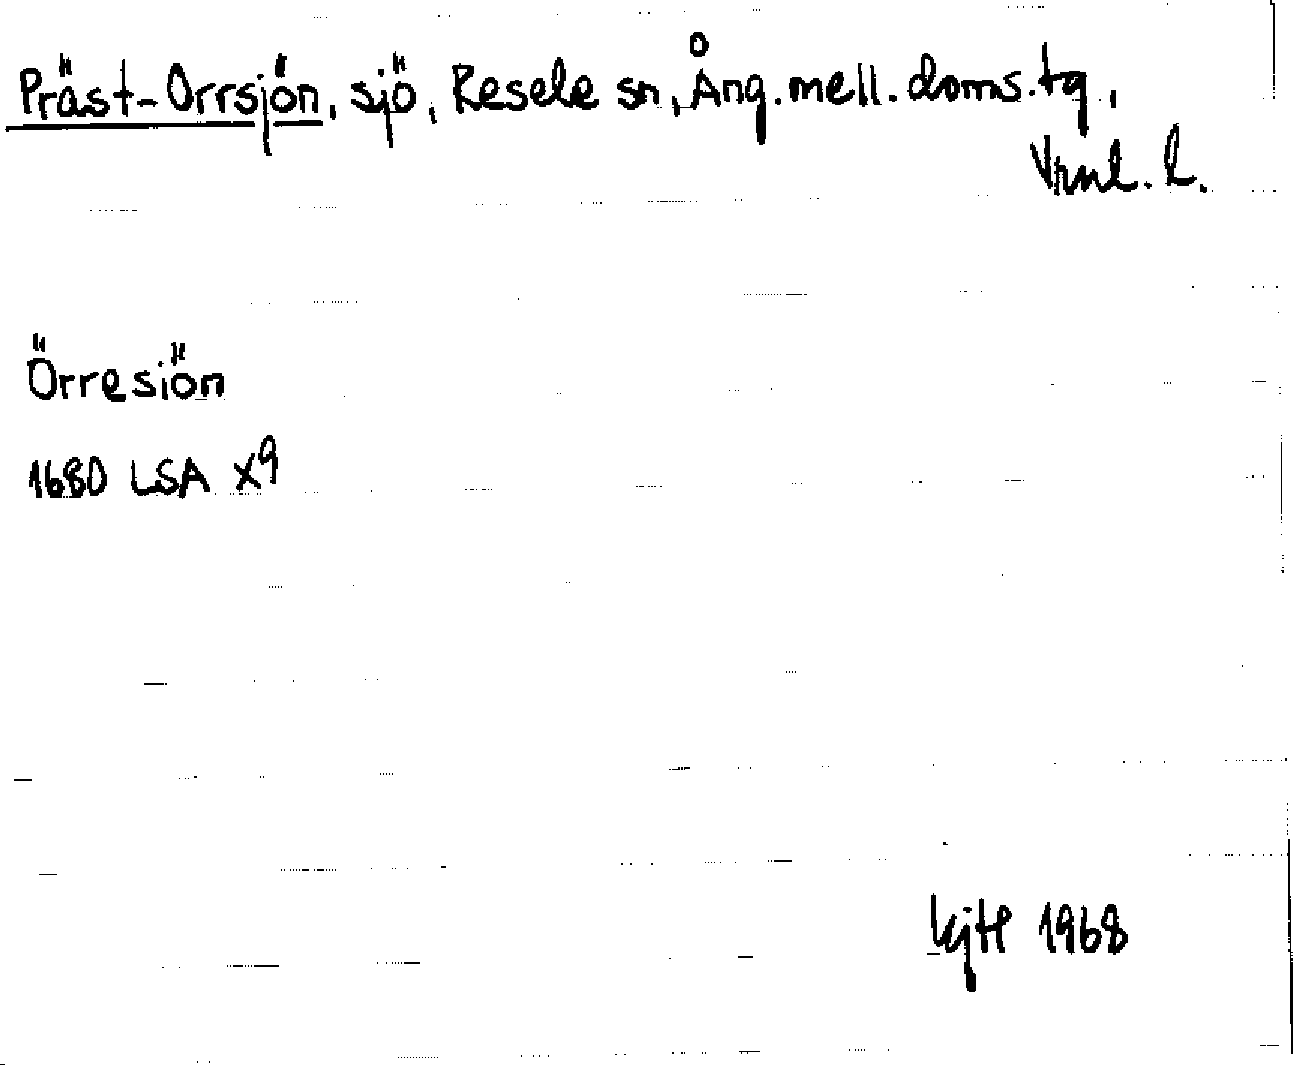 Präst-Orrsjön, sjö, Resele sn, Ång. mell. doms. tg,
Vrnl. L.
Örresiön
1680 LSA X9
1968